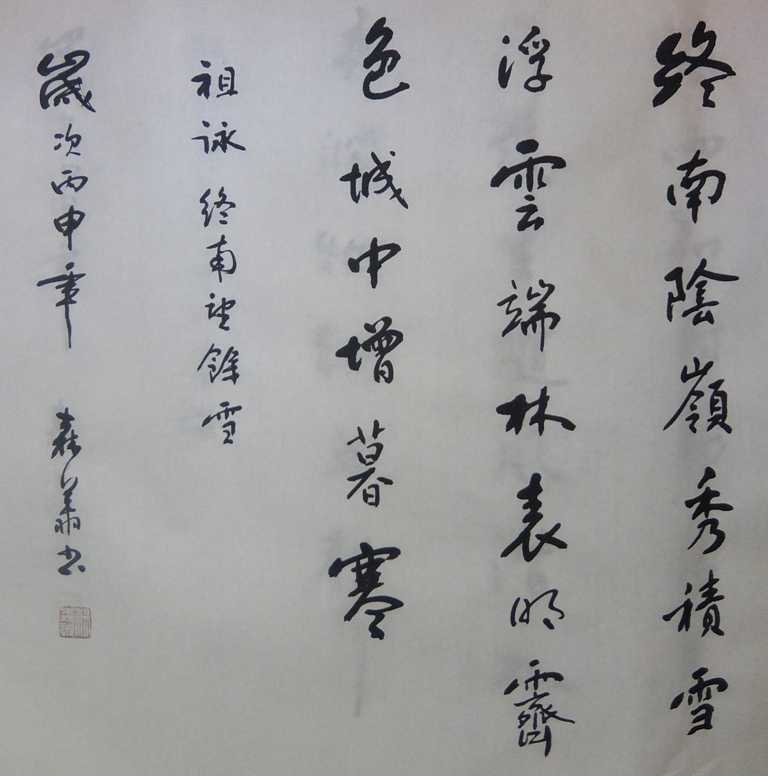 終南陰嶺秀積雪
浮雲端林表明霽
色城中增暮寒
祖詠終南望餘雪
歲次丙申年
書